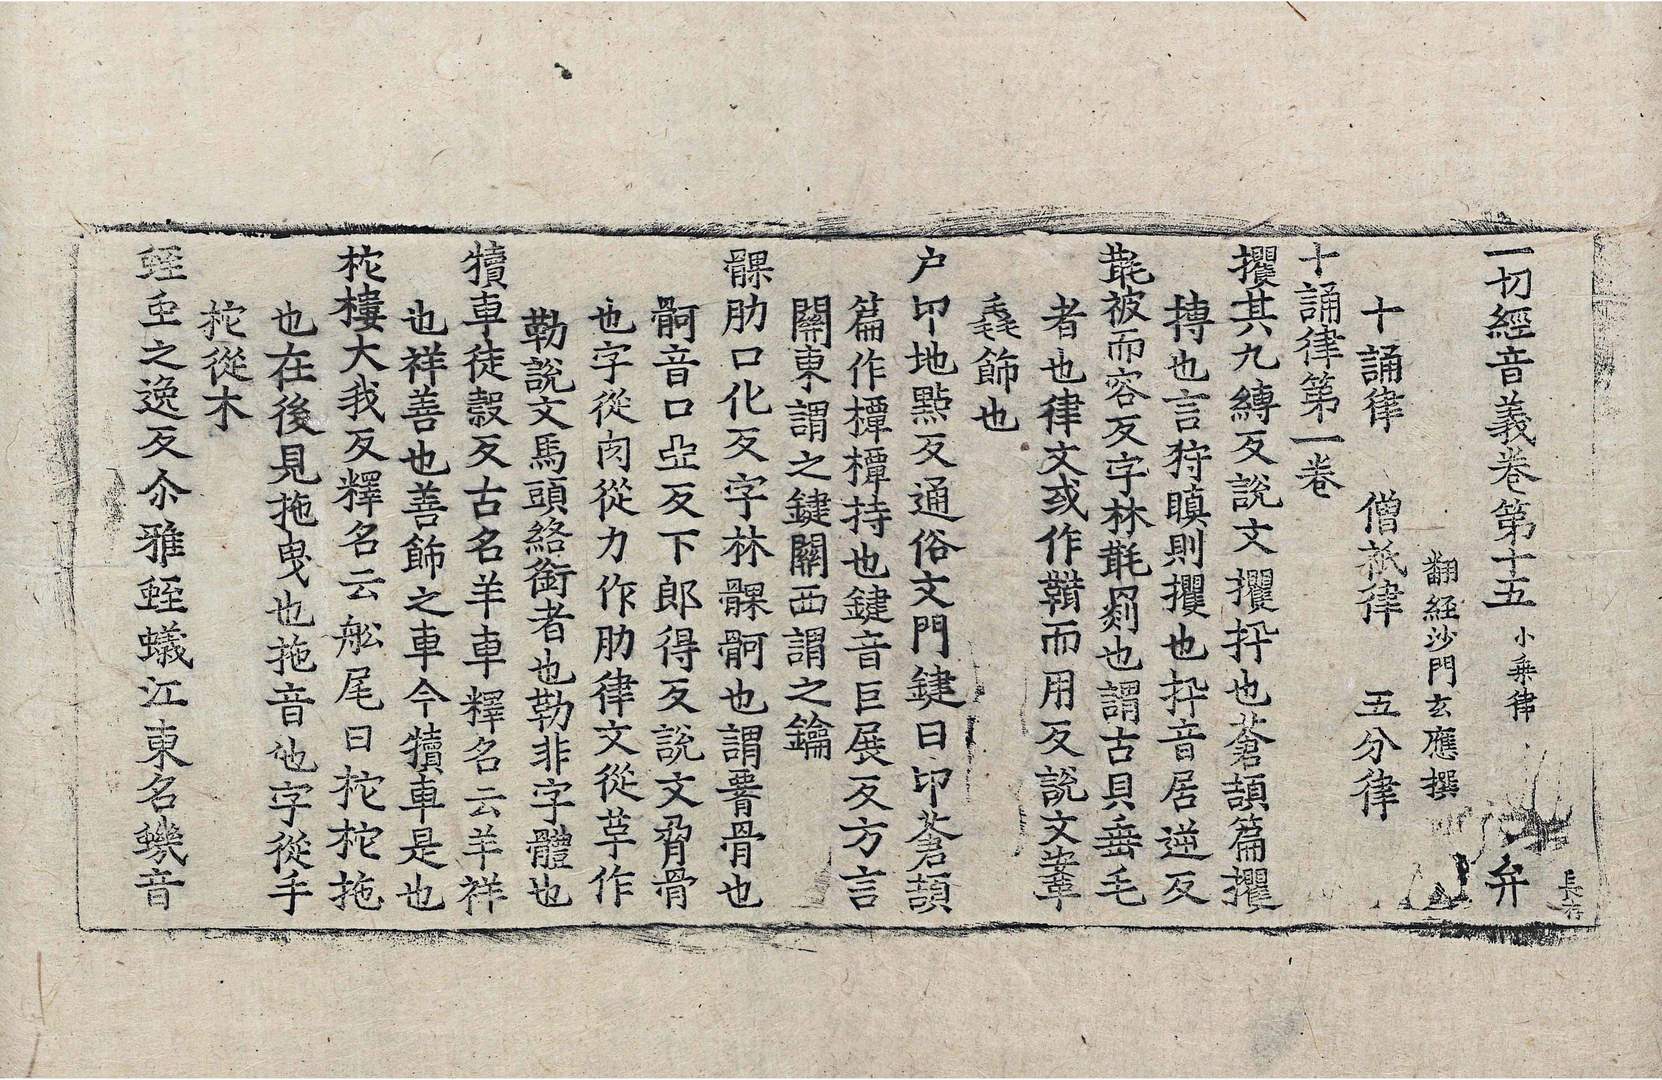 一切經音義卷第十五 小乗律 弁
長存
翻經沙門玄應撰
十誦律 僧祇律 五分律
十誦律第一卷
攫其九縛反說文攫扴也蒼頡篇攫
搏也言狩瞋則攫也扴音居逆反
㲨被而容反字林㲨罽也謂古貝垂毛
者也律文或作䩸而用反說文䩸毳
毳飾也
户㧕地點反通俗文門鍵曰㧕蒼頡
篇作橝橝持也鍵音巨展反方言
關東謂之鍵關西謂之鑰
髁肋口化反字林髁䯊也謂𦝫骨也
䯊音口亞反下郎得反說文脅骨
也字從肉從力作肋律文從革作
勒說文馬頭絡銜者也勒非字體也
犢車徒榖反古名羊車釋名云羊祥
也祥善也善飾之車今犢車是也
柁樓大我反釋名云舩尾曰柁柁拖
也在後見拖曳也拖音他字從手
柁從木
蛭𧉅之逸反尒雅蛭蟻江東名蟣音